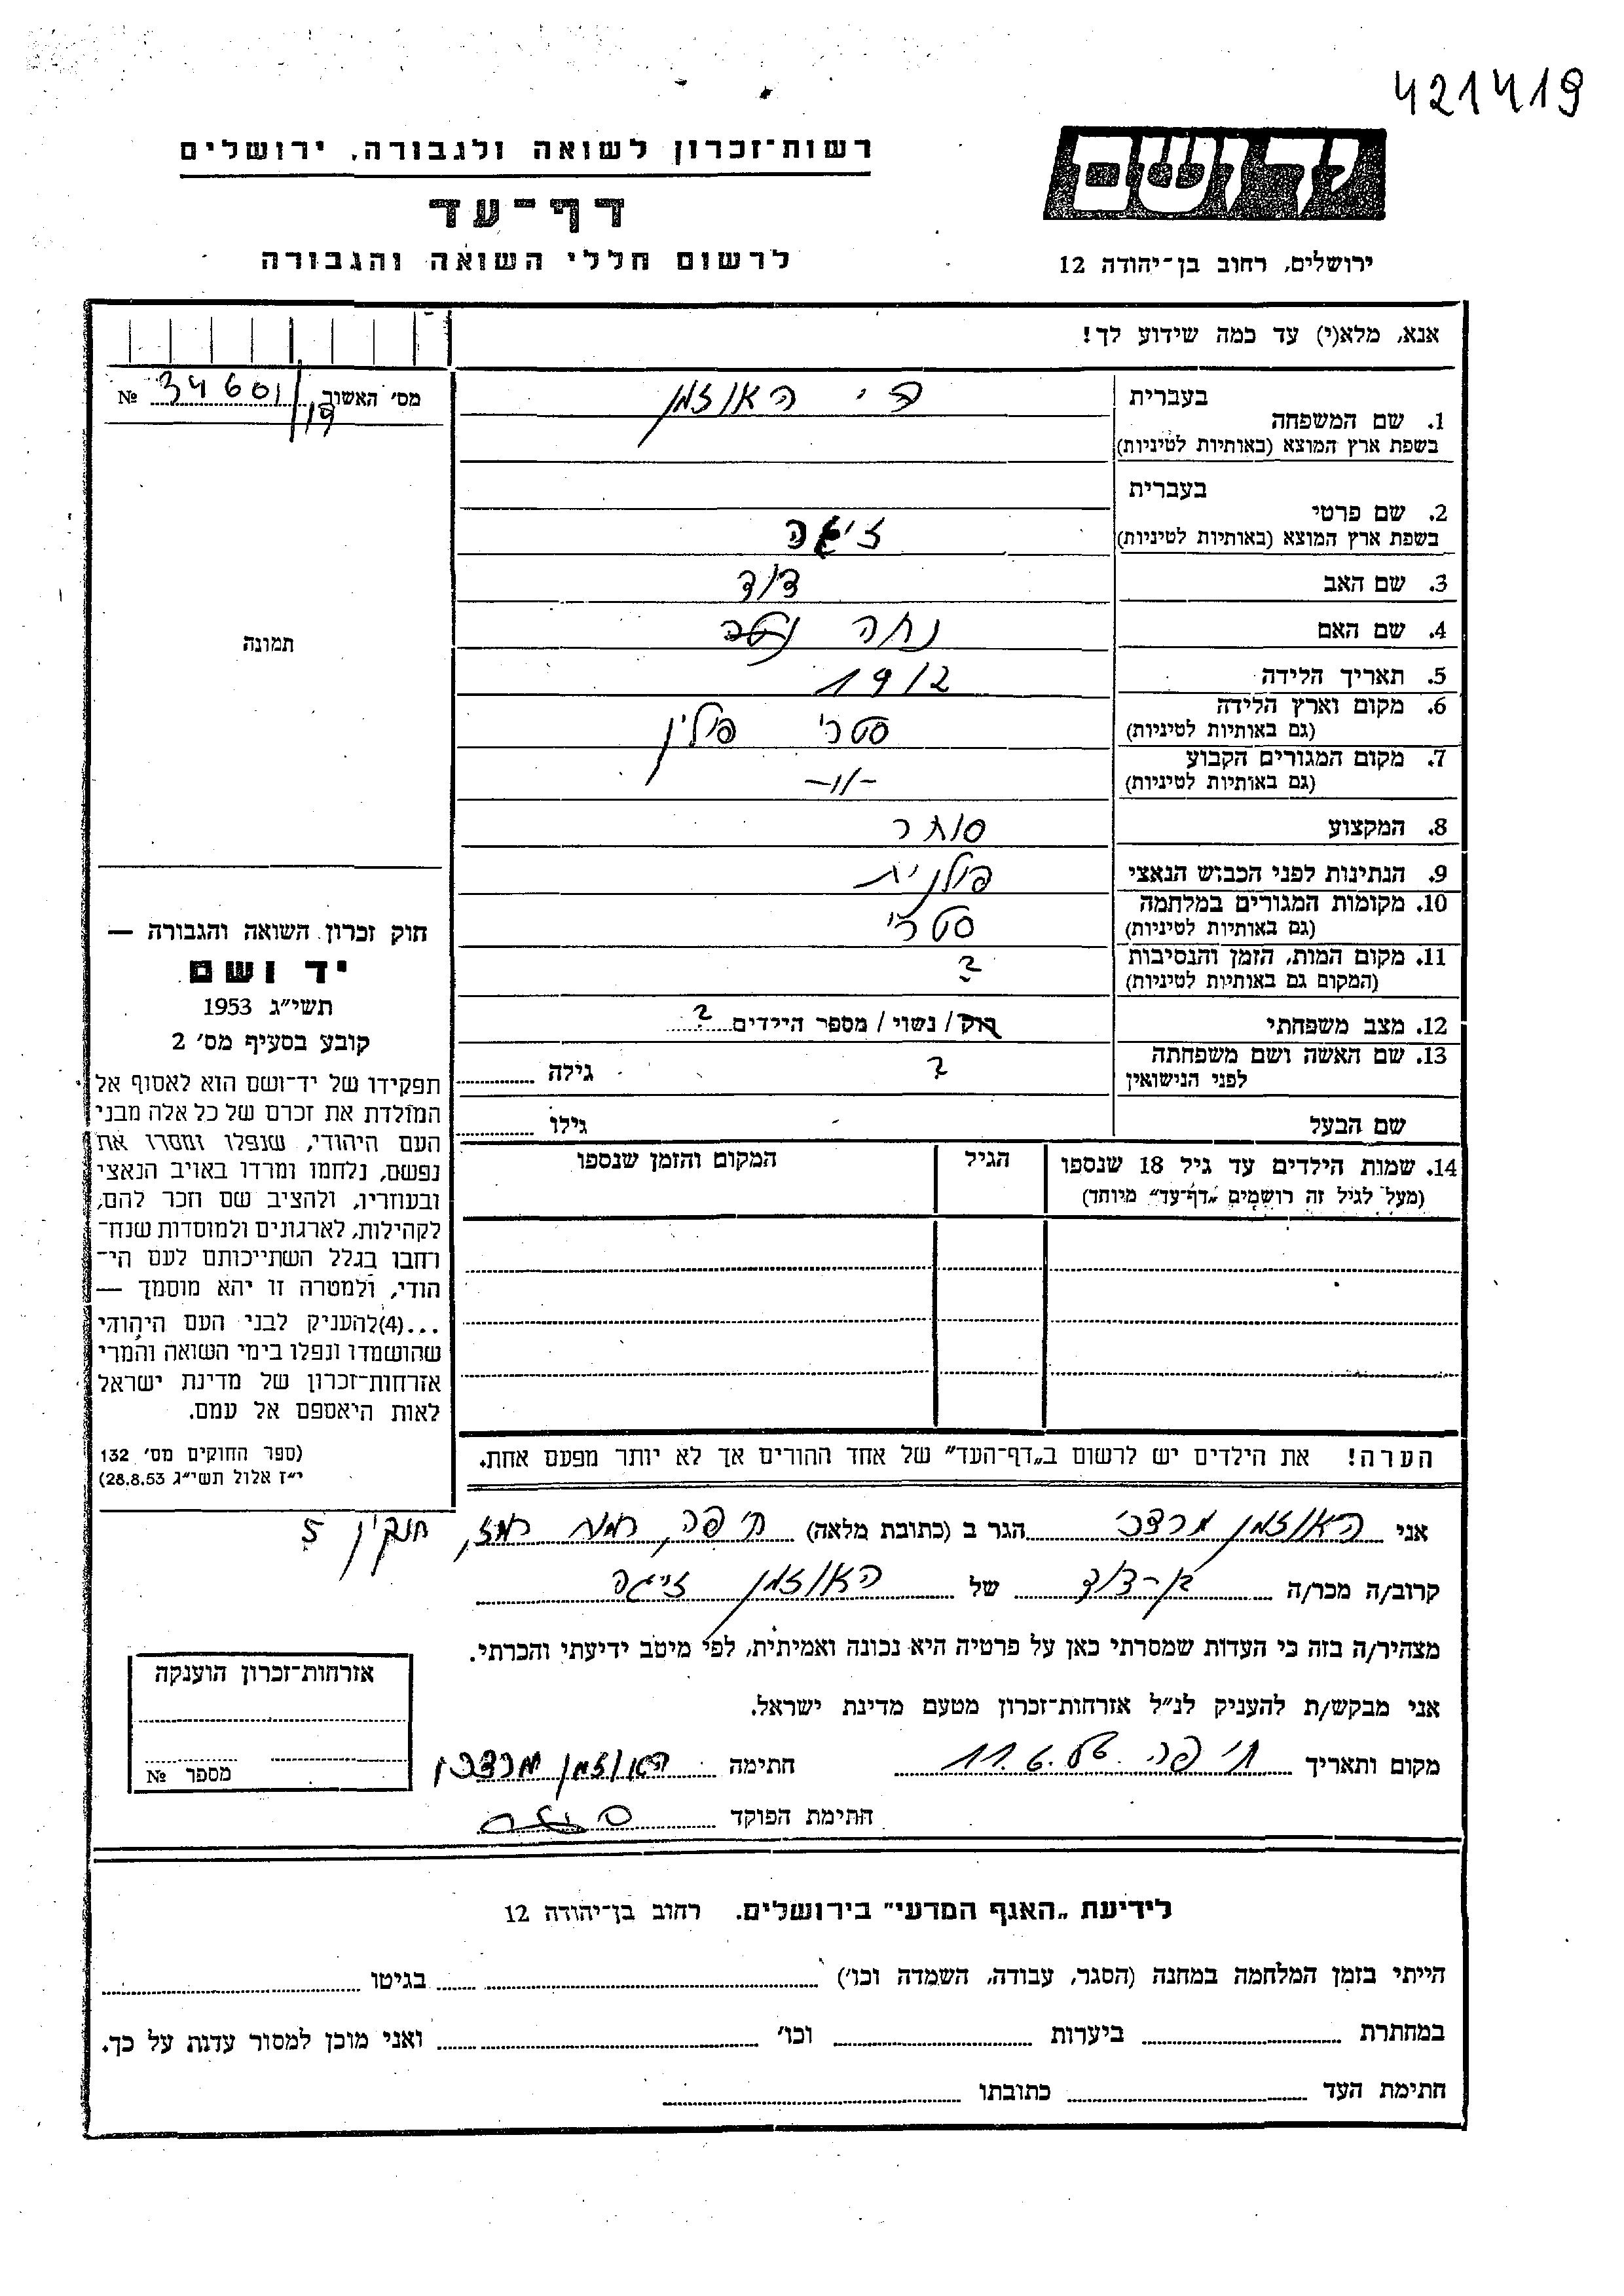 421419
רשות־זכרון לשואה ולגבורה, ירושלים
יד ושם
דף־עד
לרשום חללי השואה והגבורה
ירושלים, רחוב בן־יהודה 12
אנא, מלא(י) עד כמה שידוע לך!
מס' האשור 34601/19 №
בעברית
1. שם המשפחה האוזמן
בשפת ארץ המוצא (באותיות לטיניות)
בעברית
2. שם פרטי
בשפת ארץ המוצא (באותיות לטיניות)
3. שם האב דוד
4. שם האם נחה
תמונה
5. תאריך הלידה 1912
6. מקום וארץ הלידה סטרי פולין
(גם באותיות לטיניות)
7. מקום המגורים הקבוע -"-
(גם באותיות לטיניות)
8. המקצוע סוחר
9. הנתינות לפני הכבוש הנאצי פולנית
10. מקומות המגורים במלחמה סטרי
(גם באותיות לטיניות)
11. מקום המות, הזמן והנסיבות ?
(המקום גם באותיות לטיניות)
12. מצב משפחתי רוק / נשוי / מספר הילדים ?
13. שם האשה ושם משפחתה ? גילה
לפני הנישואין
שם הבעל גילו
14. שמות הילדים עד גיל 18 שנספו הגיל המקום והזמן שנספו
(מעל לגיל זה רושמים „דף־עד" מיוחד)
חוק זכרון השואה והגבורה —
יד ושם
תשי"ג 1953
קובע בסעיף מס' 2
תפקידו של יד־ושם הוא לאסוף אל
המולדת את זכרם של כל אלה מבני
העם היהודי, שנפלו ומסרו את
נפשם, נלחמו ומרדו באויב הנאצי
ובעוזריו, ולהציב שם וזכר להם,
לקהילות, לארגונים ולמוסדות שנח־
רחבו בגלל השתייכותם לעם הי־
הודי, ולמטרה זו יהא מוסמך —
...(4)להעניק לבני העם היהודי
שהושמדו ונפלו בימי השואה והמרי
אזרחות־זכרון של מדינת ישראל
לאות היאספם אל עמם.
(ספר החוקים מס' 132
י"ז אלול תשי"ג 28.8.53)
הערה! את הילדים יש לרשום ב„דף־העד" של אחד ההורים אך לא יותר מפעם אחת.
אני האוזמן מרדכי הגר ב (כתובת מלאה) חיפה, רמת רמז, חנקין 5
קרוב/ה מכר/ה בן-דוד של האוזמן
מצהיר/ה בזה כי העדות שמסרתי כאן על פרטיה היא נכונה ואמיתית, לפי מיטב ידיעתי והכרתי.
אני מבקש/ת להעניק לנ"ל אזרחות־זכרון מטעם מדינת ישראל.
מקום ותאריך חיפה 11.6. חתימה האוזמן מרדכי
חתימת הפוקד
אזרחות־זכרון הוענקה
מספר №
לידיעת „האגף המדעי" בירושלים. רחוב בן־יהודה 12
הייתי בזמן המלחמה במחנה (הסגר, עבודה, השמדה וכו') בגיטו
במחתרת ביערות וכו' ואני מוכן למסור עדות על כך.
חתימת העד כתובתו